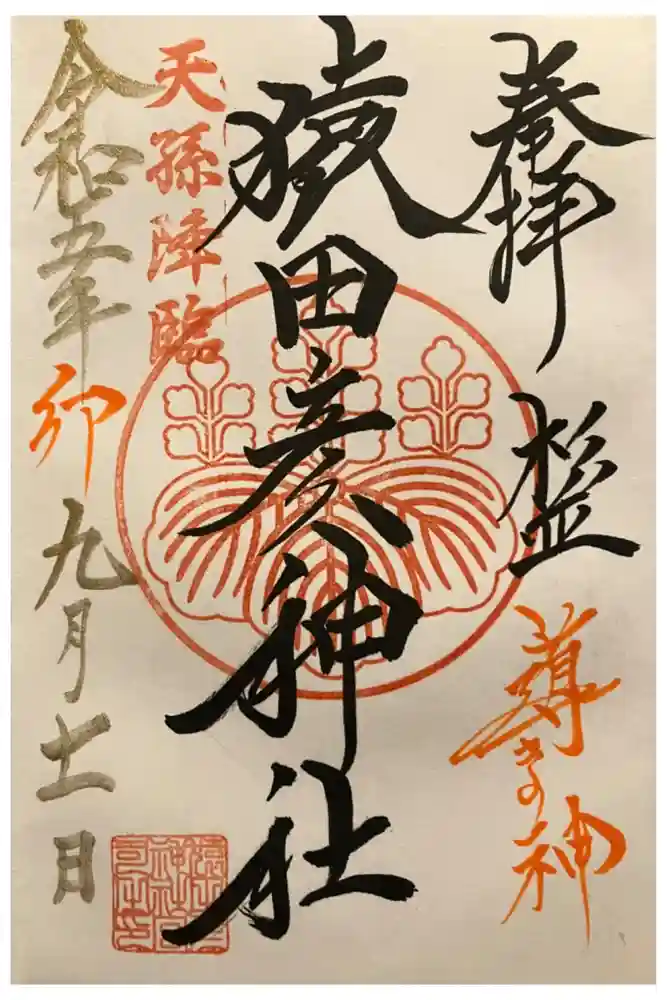 奉拝
導きの神
猿田彦神社
天孫降臨
令和五年卯九月十一日